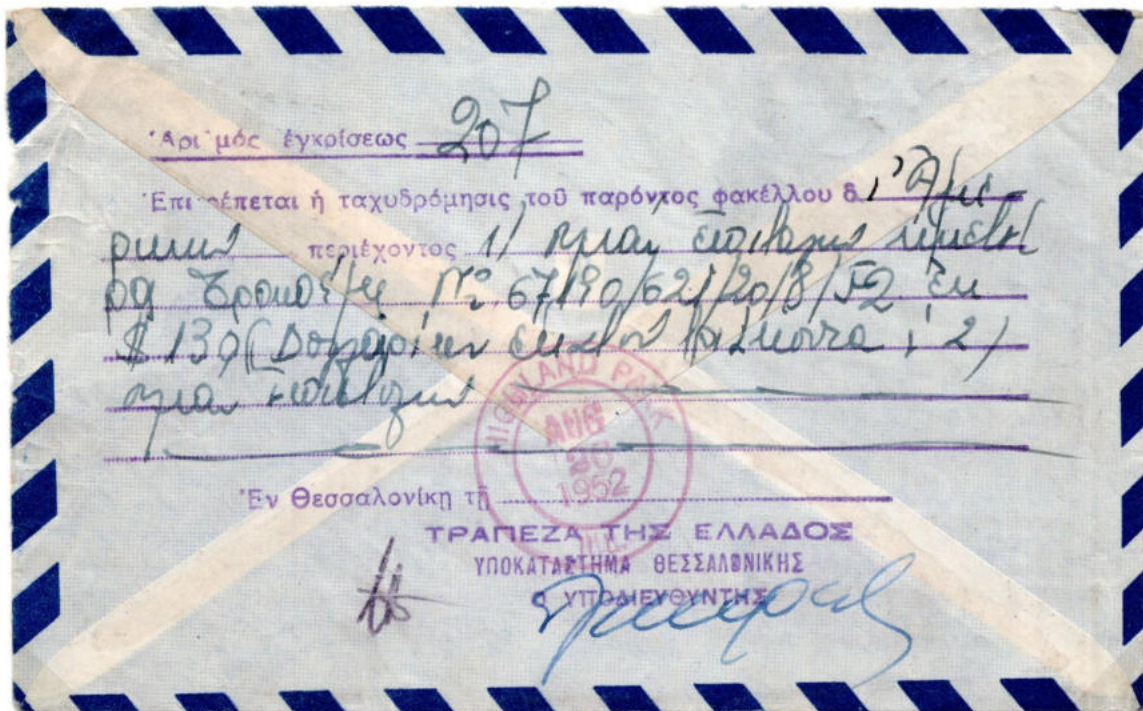 Ἀρι μός ἐγκρίσεως 207
Ἐπι ρέπεται ἡ ταχυδρόμησις τοῦ παρόντος φακέλλου δ. Ἀμε
ρικήν περιέχοντος 1) μίαν ἐπιταγὴν ἡμετέ
ρας Τραπέζης Νο 67190/621/20/8/52 ἐκ
$ 130 (Δολλαρίων ἑκατὸν τριάκοντα ; 2)
μίαν ἐπιταγὴν
HIGHLAND PARK
AUG
20
1952
ILL.
Ἐν Θεσσαλονίκῃ τῇ
ΤΡΑΠΕΖΑ ΤΗΣ ΕΛΛΑΔΟΣ
ΥΠΟΚΑΤΑΣΤΗΜΑ ΘΕΣΣΑΛΟΝΙΚΗΣ
Ο ΥΠΟΔΙΕΥΘΥΝΤΗΣ